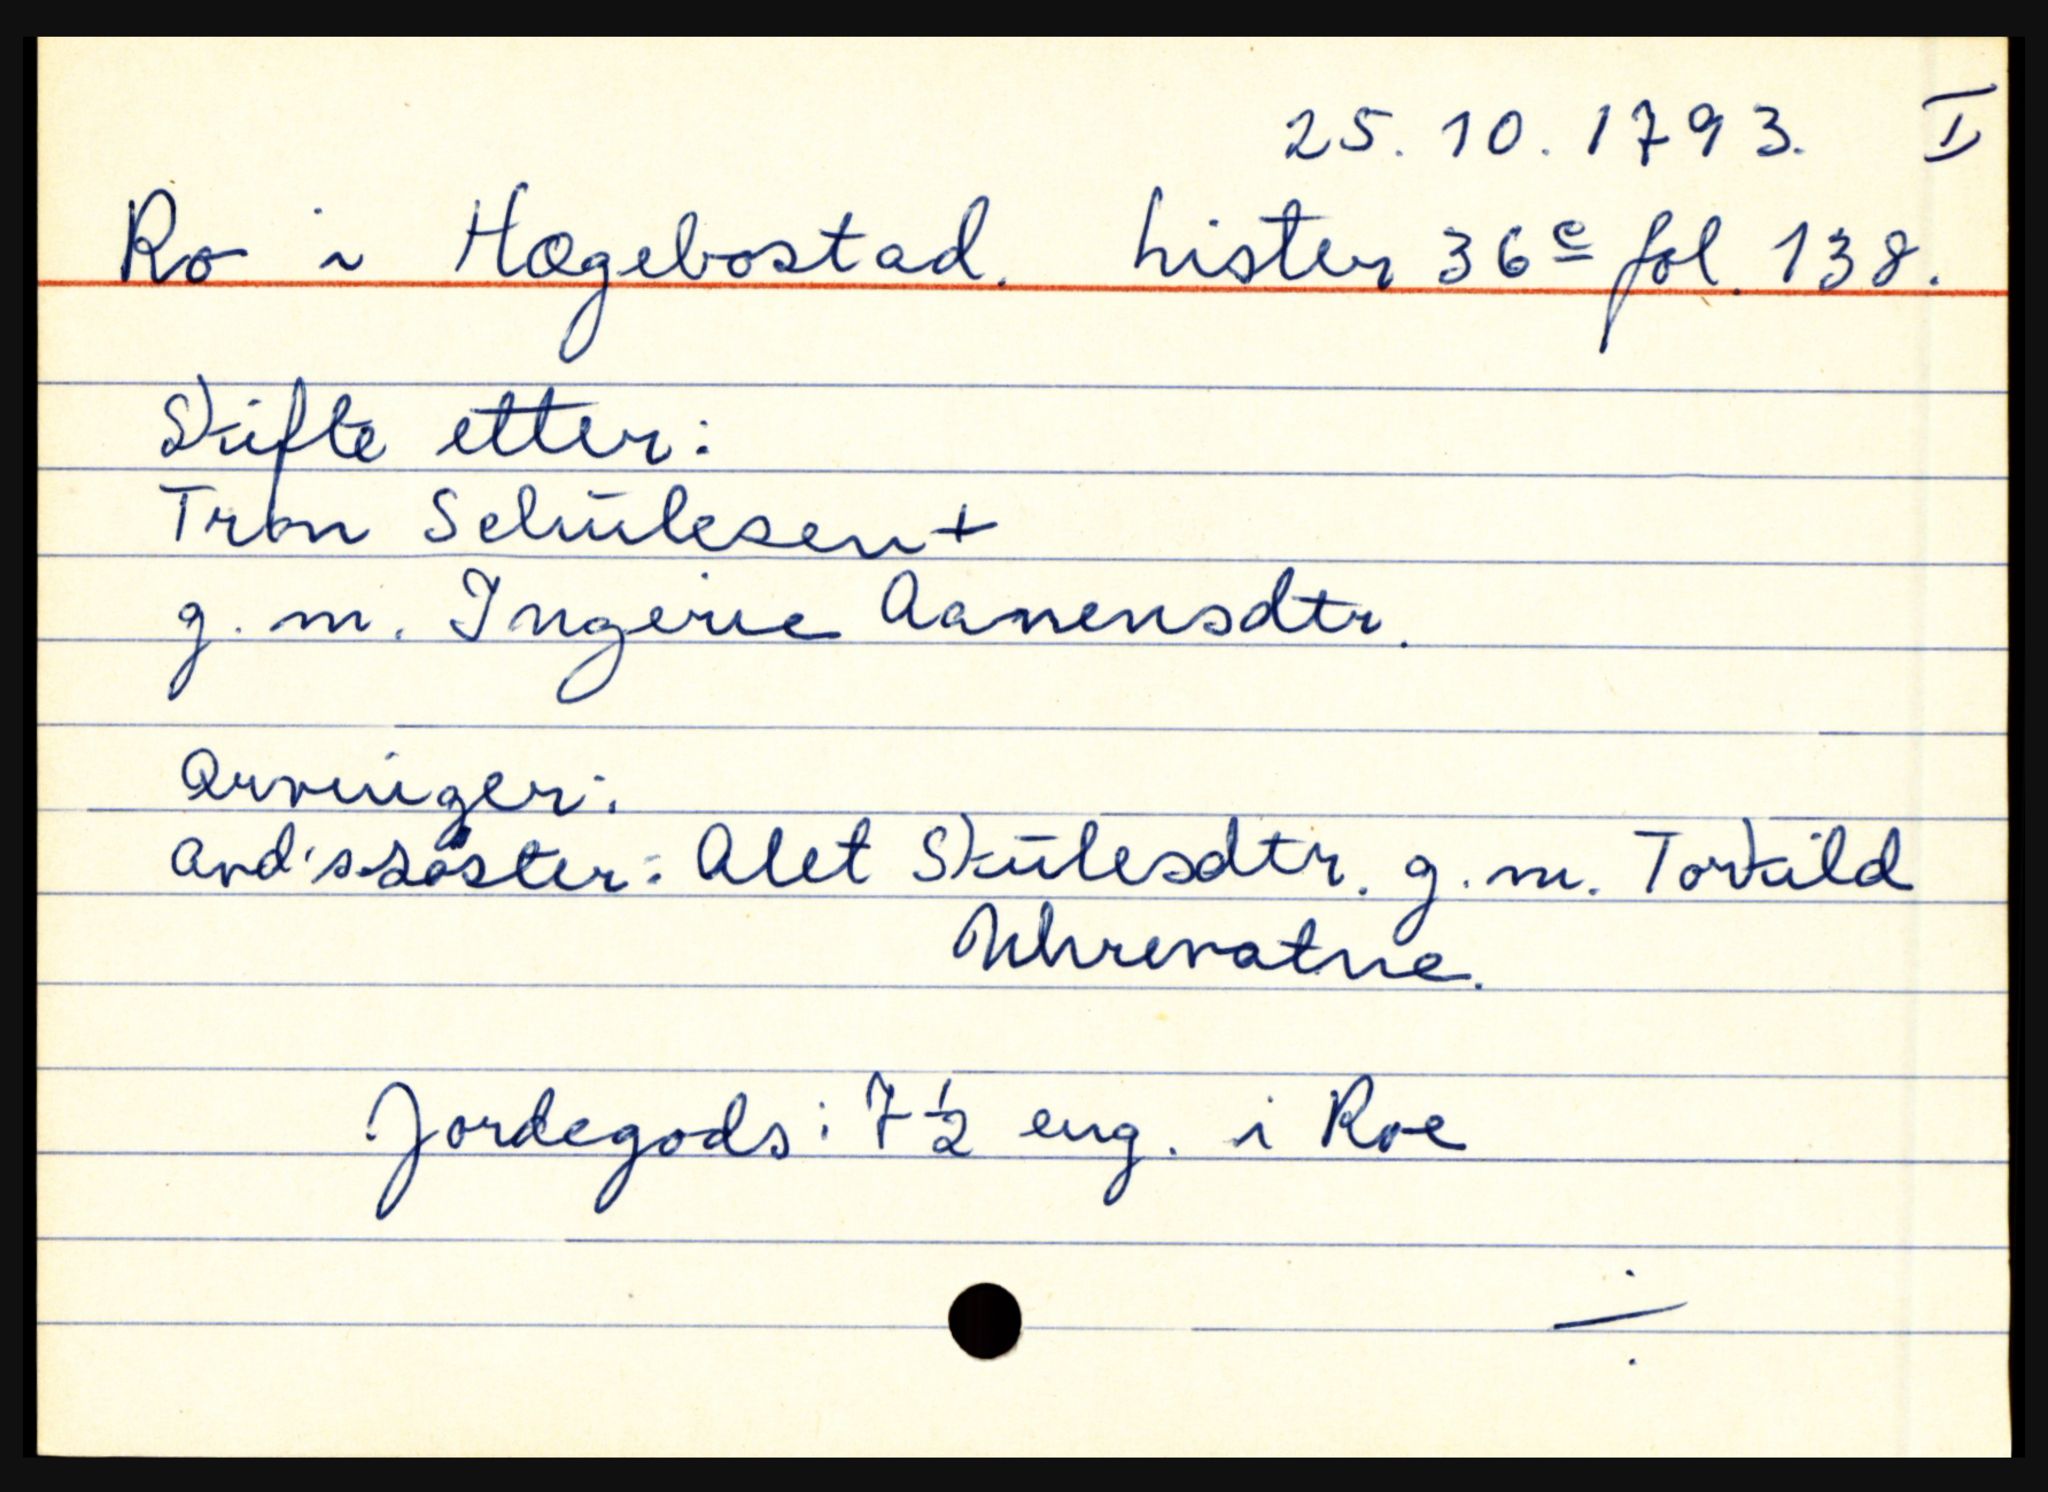 25.10.1793. II
Ro i Hægebostad. Lister 36c fol. 138.
Skifte etter:
Tron Schulesen +
g.m. Ingerie Aanensdtr.
Arvinger:
avd's søster: Alet Skulesdtr. g.m. Torkild
Uhrevatne.
Jordegods: 7 1/2 eng. i Roe